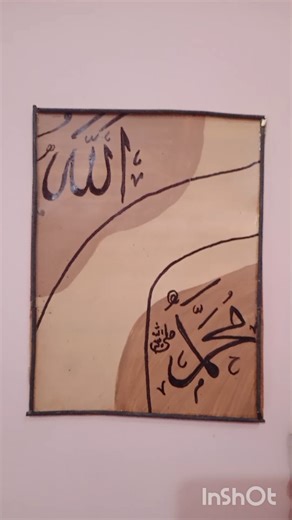 الله
محمد
ﷺ
InShOt